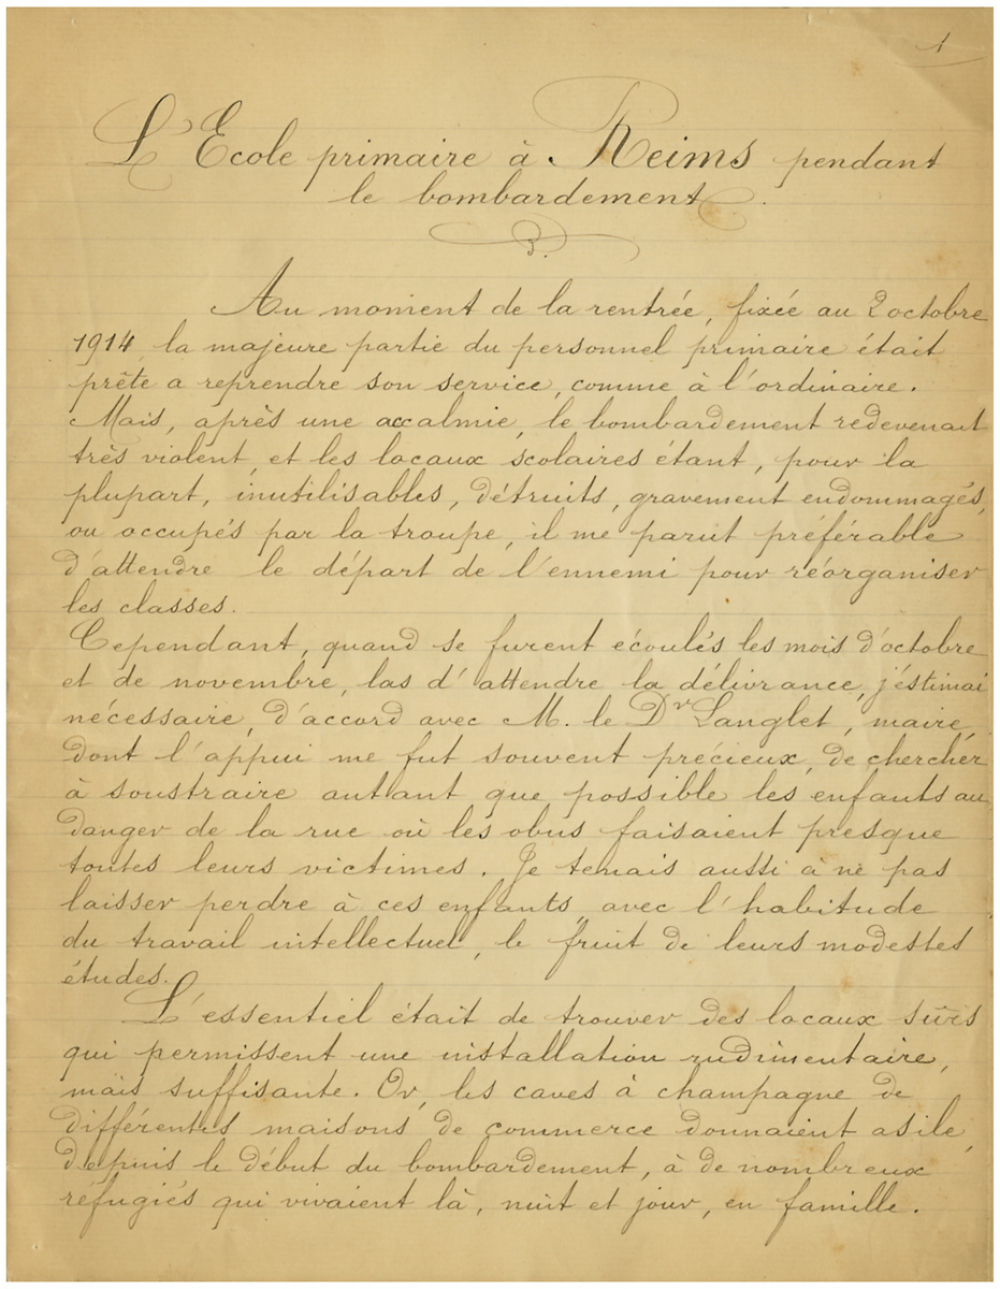 1
L'Ecole primaire à Reims pendant
le bombardement.
Au moment de la rentrée, fixée au 2 octobre
1914, la majeure partie du personnel primaire était
prête a reprendre son service, comme à l'ordinaire.
Mais, après une accalmie, le bombardement redevenait
très violent, et les locaux scolaires étant, pour la
plupart, inutilisables, détruits, gravement endommagés,
ou occupés par la troupe, il me parut préférable
d'attendre le départ de l'ennemi pour réorganiser
les classes.
Cependant, quand se furent écoulés les mois d'octobre
et de novembre, las d'attendre la délivrance, j'estimai
nécessaire, d'accord avec M. le Dr Langlet, maire,
dont l'appui me fut souvent précieux, de chercher
à soustraire autant que possible les enfants au
danger de la rue où les obus faisaient presque
toutes leurs victimes. Je tenais aussi à ne pas
laisser perdre à ces enfants, avec l'habitude
du travail intellectuel, le fruit de leurs modestes
études.
L'essentiel était de trouver des locaux sûrs
qui permissent une installation rudimentaire,
mais suffisante. Or, les caves à champagne de
différentes maisons de commerce donnaient asile,
depuis le début du bombardement, à de nombreux
réfugiés qui vivaient là, nuit et jour, en famille.